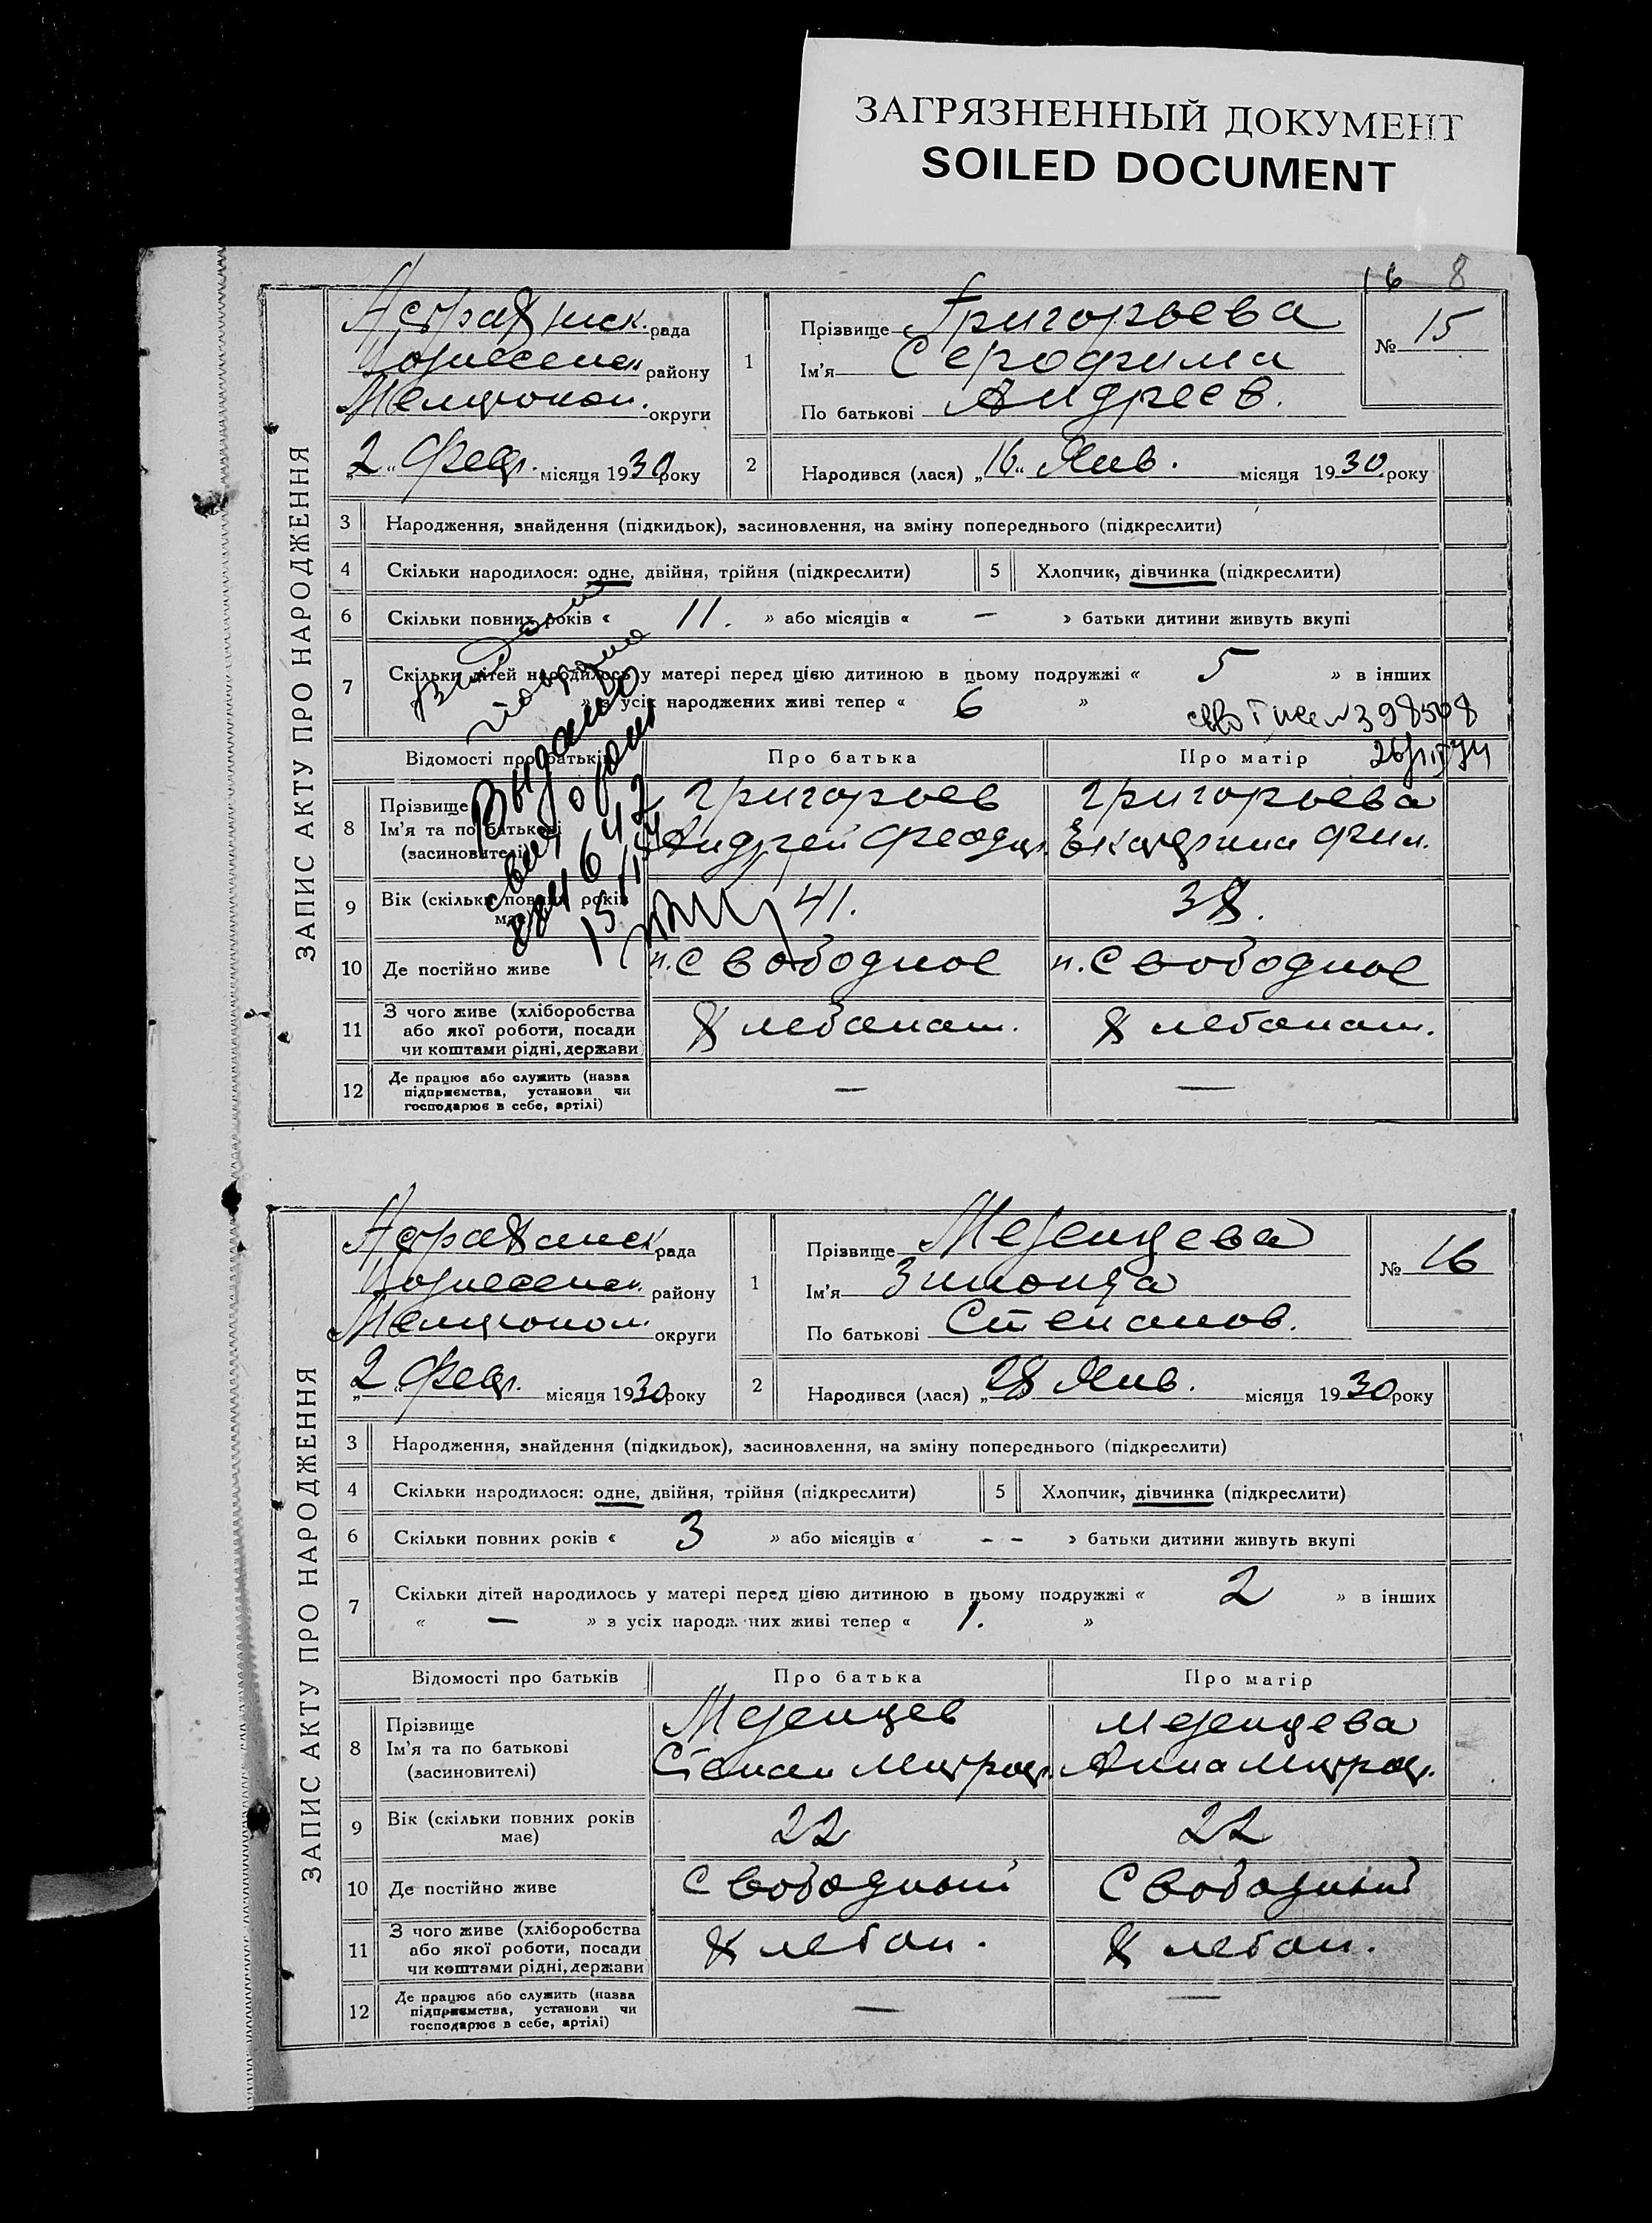 ЗАГРЯЗНЕННЫЙ ДОКУМЕНТ
SOILED DOCUMENT
16 8
ЗАПИС АКТУ ПРО НАРОДЖЕННЯ
Астраханск. рада
Вознесенск району
Мелитопол. округи
„2„ Февр. місяця 1930 року
1 Прізвище Григорьева
Ім'я Серофима
По батькові Андреев.
№ 15
2 Народився (лася) „16„ Янв. місяця 1930 року
3 Народження, знайдення (підкидьок), засиновлення, на зміну попереднього (підкреслити)
4 Скільки народилося: одне, двійня, трійня (підкреслити) 5 Хлопчик, дівчинка (підкреслити)
6 Скільки повних років « 11. » або місяців « — » батьки дитини живуть вкупі
7 Скільки дітей народилось у матері перед цією дитиною в цьому подружжі « 5 » в інших
» з усіх народжених живі тепер « 6 »
398508
Выдано
Відомості про батьків Про батька Про матір
8 Прізвище Григорьев Григорьева
Ім'я та по батькові Андрей Феодор. Екатерина Фил.
(засновителі)
9 Вік (скільки повних років має) 41. 38.
10 Де постійно живе п. Свободное п. Свободное
11 З чого живе (хліборобства Хлебопаш. Хлебопаш.
або якої роботи, посади
чи коштами рідні, держави
12 Де працює або служить (назва — —
підприємства, установи чи
господарює в себе, артілі)
ЗАПИС АКТУ ПРО НАРОДЖЕННЯ
Астраханск рада
Вознесенск. району
Мелитопол. округи
„2„ Февр. місяця 1930 року
1 Прізвище Мезенцева
Ім'я Зиноида
По батькові Степанов.
№ 16
2 Народився (лася) „28 Янв. місяця 1930 року
3 Народження, знайдення (підкидьок), засиновлення, на зміну попереднього (підкреслити)
4 Скільки народилося: одне, двійня, трійня (підкреслити) 5 Хлопчик, дівчинка (підкреслити)
6 Скільки повних років « 3 » або місяців « - - » батьки дитини живуть вкупі
7 Скільки дітей народилось у матері перед цією дитиною в цьому подружжі « 2 » в інших
« — » з усіх народж них живі тепер « 1. »
Відомості про батьків Про батька Про матір
8 Прізвище Мезенцев Мезенцева
Ім'я та по батькові Степан Митроф. Анна Митроф.
(засиновителі)
9 Вік (скільки повних років 22 22
має)
10 Де постійно живе Свободный Свободный
11 З чого живе (хліборобства Хлебоп. Хлебоп.
або якої роботи, посади
чи коштами рідні, держави
12 Де працює або служить (назва — —
підприємства, установи чи
господарює в себе, артілі)